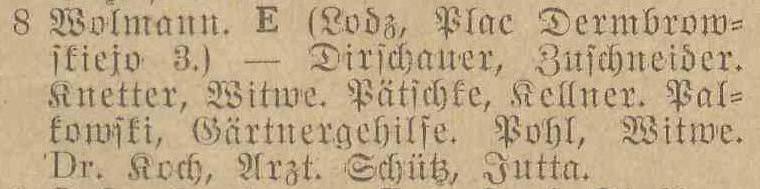 8 Wolmann. E (Lodz, Plac Dermbrow=
skiejo 3.) — Dirschauer, Zuschneider.
Knetter, Witwe. Pätschke, Kellner. Pal=
kowski, Gärtnergehilfe. Pohl, Witwe.
Dr. Koch, Arzt. Schütz, Jutta.